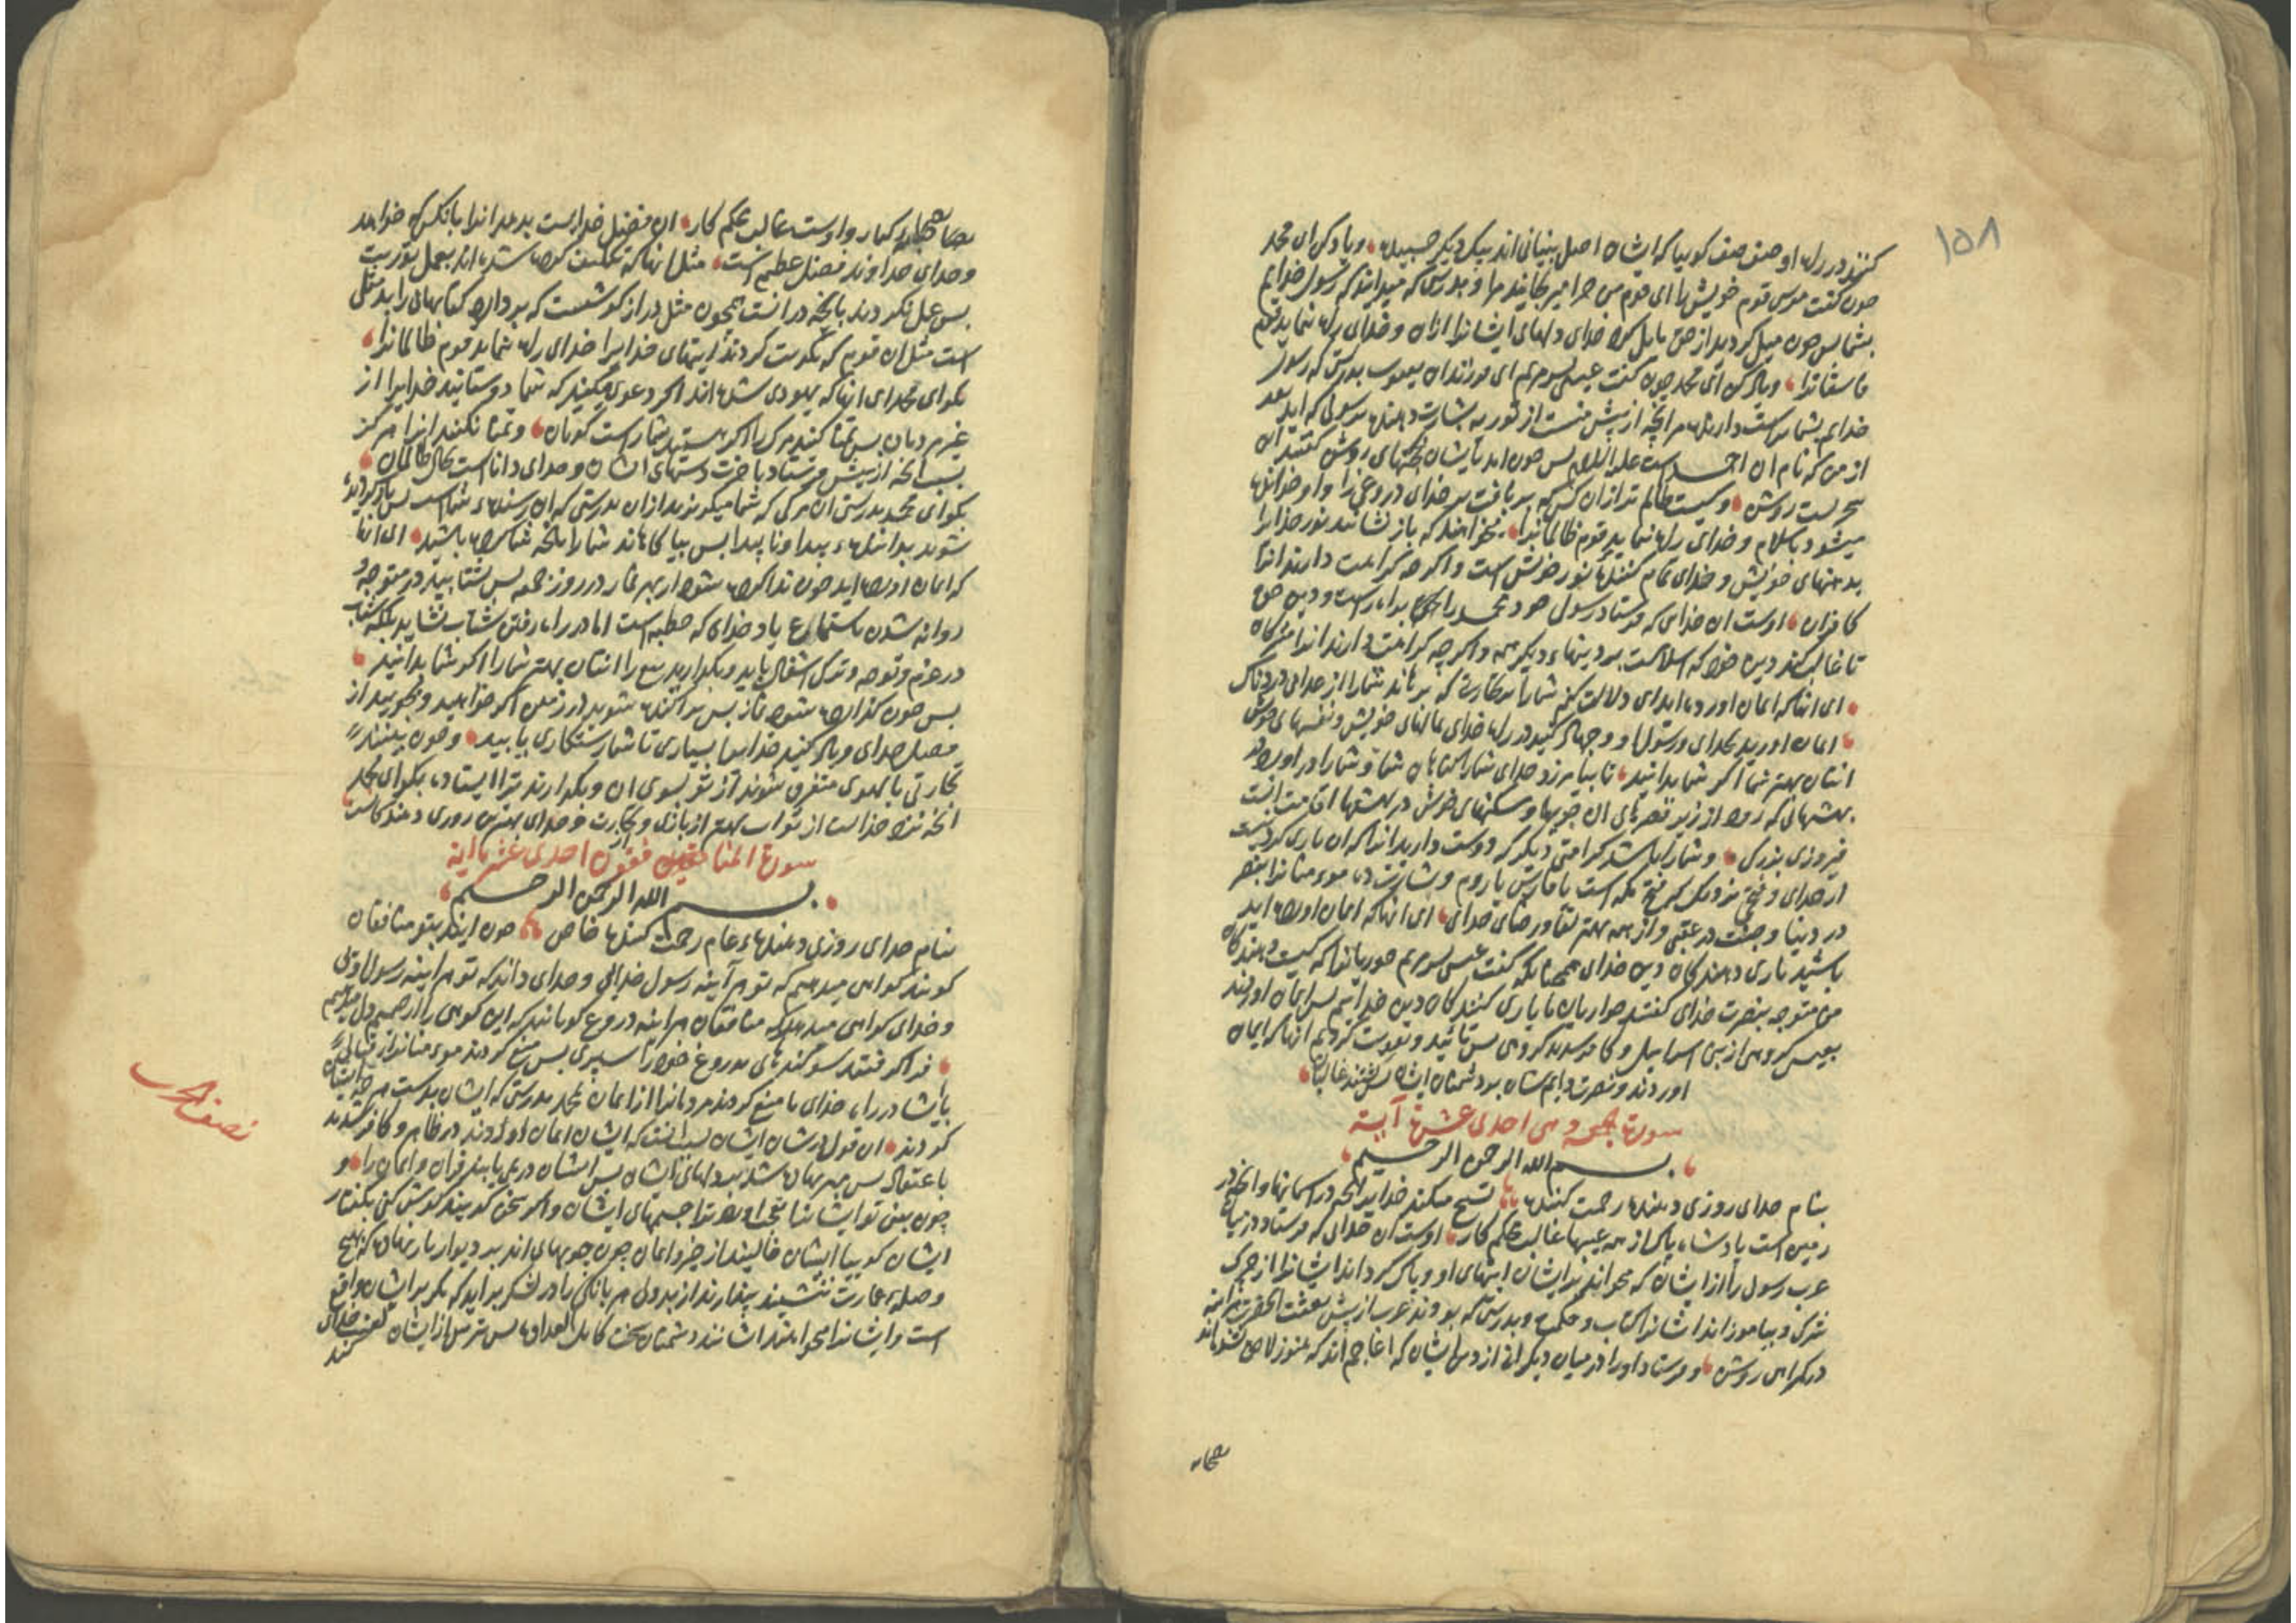 ۱۵۸
کنند در راه او صف صف کوییا که ایشان اصل بنیانی‌اند بیکدیکر چسبیده و یاد کن ای محمد
چون کفت موسی قوم خویش را ای قوم من چرا میرنجانید مرا و بدرستی که میدانید که رسول خدایم
بشما پس چون میل کردید از حق مایل کرد خدای دلهای ایشانرا از ان و خدای راه ننماید قوم
فاسقانرا و یاد کن ای محمد چون کفت عیسی پسر مریم ای فرزندان یعقوب بدرستی که رسول
خدایم بشما راست دارنده مر انچه از پیش منست از توریة بشارت دهنده برسولی که اید بعد
از من که نام ان احمد است علیه السلام پس چون امد بایشان حجتهای روشن کفتند این
سحریست روشن و کیست ظالم تر از ان کس که بر بافت بر خدای دروغی را و او خوانده
میشود باسلام و خدای راه ننماید قوم ظالمانرا میخواهند که باز نشانند نور خدایرا
بدهنهای خویش و خدای تمام کننده نور خویش است و اکر چه کراهت دارند انرا
کافران اوست ان خدای که فرستاد رسول خود محمد را براه راست و دین حق
تا غالب کند دین خود که اسلامست بر دینهاء دیکر همه و اکر چه کراهت دارند انرا مشرکان
ای انها که ایمان اورده‌اید ایا دلالت کنم شما را بر تجارتی که برهاند شما را از عذابی دردناک
ایمان اورید بخدای و رسول او و جهاد کنید در راه خدای بمالهای خویش و نفسهای خویش
انتان بهتر شما اکر شما بدانید تا بیامرزد خدای شما را کناهان شما و شما را در اورد در
بهشتهائی که رود از زیر قصرهای ان جویها و مسکنهای خوش در بهشتها اقامت انست
فیروزی بزرک و شما را باشد کرامتی دیکر که دوست دارید انرا که ان یاری کردنیست
از خدای و فتح نزدیک که فتح مکه است یا فارس یا روم و بشارت ده مومنانرا بنصر
در دنیا و جنت در عقبی و از همه بهتر لقا و رضای خدای ای انها که ایمان اورده‌اید
باشید یاری دهندکان دین خدای همچنانکه کفت عیسی پسر مریم حوریانرا که کیست دهندکان
من متوجه بنصرت خدای کفتند حواریان ما یاری کنندکان دین خداییم پس ایمان اوردند
بعیسی کروهی از بنی اسراییل و کافر شدند کروهی پس تائید و تقویت کردیم انها که ایمان
اوردند و نصرت دادیم شان بر دشمنان ایشان پس کشتند غالبان
سورة الجمعه و هی احدی عشرة آیة
بسم الله الرحمن الرحیم
بنام خدای روزی دهنده رحمت کننده تسبیح میکند خدایرا انچه در اسمانها و انچه در
زمین است پادشاه پاک از همه عیبها غالب محکم کار اوست ان خدائی که فرستاد در میان
عرب رسول را از ایشان که میخواند بر ایشان ایتهای او و پاک کرداند ایشانرا از چرک
شرک و بیاموزاند ایشانرا کتاب و حکمت و بدرستی که بودند عرب از پیش بعثت انحضرت هراینه
در کمراهی روشن و فرستاد او را در میان دیکرانی از دین ایشان که اعاجم‌اند که هنوز لاحق نشده‌اند
بصحابه
بصحابه کبار و اوست غالب محکم کار ان فضل خداست بدهد انرا بانکس که خواهد
و خدای خداوند فضل عظیم است مثل انها که تکلیف کرده شده‌اند بعمل توریت
پس عمل نکردند بانچه در انست همچون مثل دراز کوشست که بردارد کتابهائی را بد مثل
است مثل ان قوم که تکذیب کردند ایتهای خدایرا خدای راه ننماید قوم ظالمانرا
بکو ای محمد ای انها که یهودی شده‌اند اکر دعوی میکنید که شما دوستانید خدایرا از
غیر مردمان پس تمنا کنید مرک را اکر هستید شما راست کویان و تمنا نکنند انرا هرکز
بسبب انچه از پیش فرستاد باخرت دستهای ایشان و خدای داناست بحال ظالمان
بکو ای محمد بدرستی ان مرکی که شما میکریزید از ان بدرستی که ان رسنده شماست پس باز کردانیده
شوید بدانندهء پیدا و ناپیدا پس بیاکاهاند شما را بانچه شما کرده باشید ای انها
که ایمان اورده‌اید چون ندا کرده شود از بهر نماز در روز جمعه پس بشتابید در متوجه و
روانه شدن باستماع یاد خدای که خطبه است اما در راه رفتن شتاب نشاید بلکه شتاب
در عزم و توجه و ترک اشغال باید و بکذارید بیع را انتان بهتر شما را اکر شما بدانید
پس چون کذارده شود نماز پس پراکنده شوید در زمین اکر خواهید و بجویید از
فضل خدای و یاد کنید خدایرا بسیاری تا شما رستکاری یابید و چون بینند
تجارتی یا لهوی متفرق شوند از تو بسوی ان و بکذارند ترا ایستاده بکو ای محمد
انچه نزد خداست از ثواب بهتر از بازی و از تجارت و خدای بهترین روزی دهندکانست
سورة المنافقون احدی عشر آیة
بسم الله الرحمن الرحیم
بنام خدای روزی دهندهء عام رحمت کننده خاص چون ایند بتو منافقان
کویند کواهی میدهیم که تو هر آینه رسول خدایی و خدای داند که تو هر اینه رسول اوئی
و خدای کواهی میدهد که منافقان هر اینه دروغ کویانند که این کواهی را از صمیم دل میدهیم
فرا کرفتند سوکندهای بدروغ خود را سپری پس منع کردند مومنانرا از قتال
با ایشان در راه خدای یا منع کردند مردمانرا از ایمان بمحمد بدرستی که ایشان بدست هر چه ایشان
کردند ان قول در شان ایشان بسبب انست که ایشان ایمان اوردند در ظاهر و کافر شدند
باعتقاد پس مهر نهاده شد بر دلهای ایشان پس ایشان در نمی‌یابند قران و ایمان را و
چون بینی تو ایشانرا بعجب اورد ترا جسمهای ایشان و اکر سخن کویند کوش کنی بکفتار
ایشان کوییا ایشان خالیند از خیر و ایمان چون چوبهای‌اند بر دیوار باز نهاده که هیچ
وصله عمارت ننشیند پندارند از بددلی هر بانکی را در لشکر براید که مکر بر ایشان واقع
است و ایشانرا میخواهند ایشانند دشمنان سخت کامل العداوه پس بترس از ایشان لعنت خدای
کند
نصف الحزب